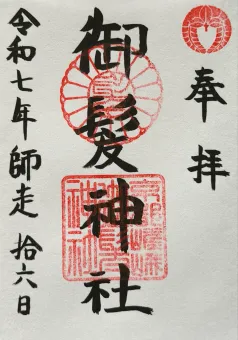 奉拝
御髪神社
令和七年師走拾六日